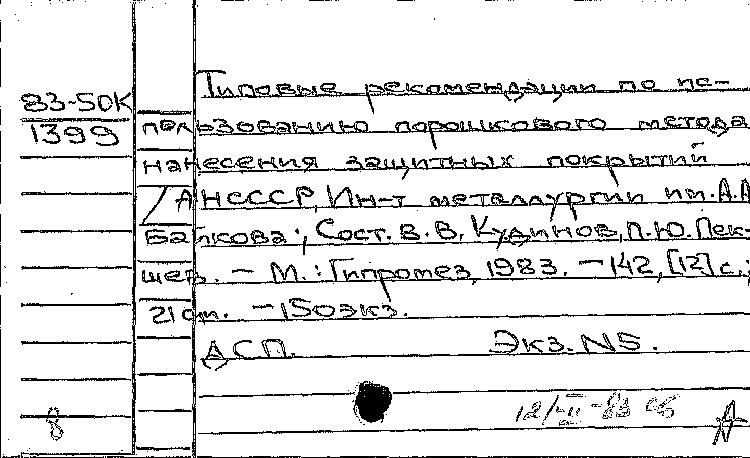 83-50К
1399
Типовые рекомендации по ис-
пользованию порошкового метода
нанесения защитных покрытий
/АН СССР, Ин-т металлургии им. А.А.
Байкова; Сост. В.В. Кудинов, П.Ю. Пек-
шев. – М.: Гипромез, 1983. – 142, [12] с.;
21 см. – 150 экз.
ДСП. Экз. N5.
8 12/II-83